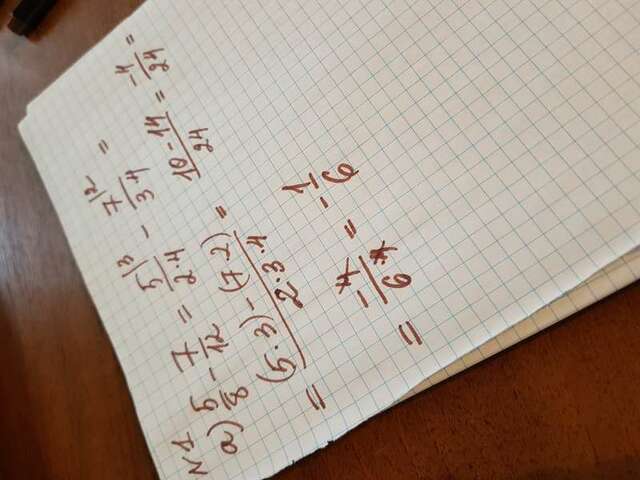 N1
a) 5/8 - 7/12 = 5|3/2·4 - 7|2/3·4 =
= (5·3)-(7·2)/2·3·4 = 10-14/24 = -4/24 =
= -4/6·4 = -1/6